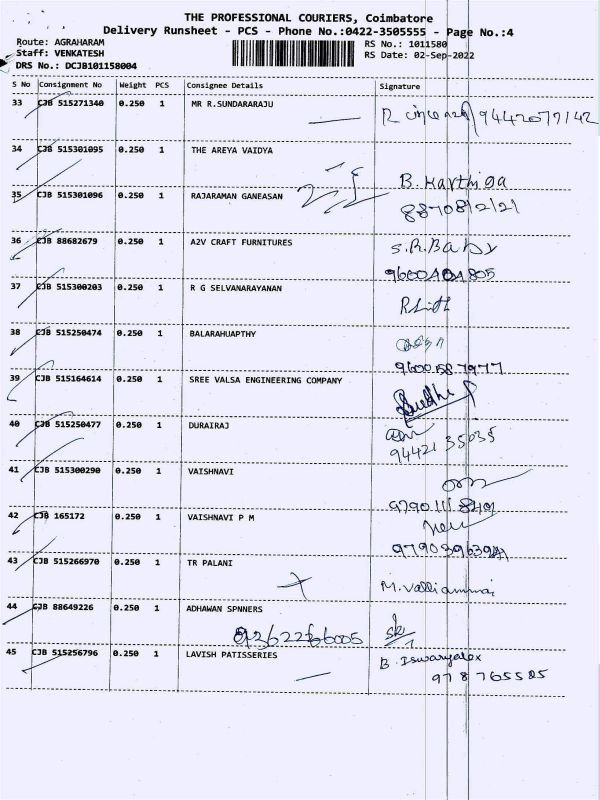 THE PROFESSIONAL COURIERS, Coimbatore
Delivery Runsheet - PCS - Phone No.:0422-3505555 - Page No.:4
Route: AGRAHARAM RS No.: 1011580
Staff: VENKATESH RS Date: 02-Sep-2022
DRS No.: DCJB101158004
S No Consignment No Weight PCS Consignee Details Signature
33 CJB 515271340 0.250 1 MR R.SUNDARARAJU
9442079142
34 CJB 515301095 0.250 1 THE AREYA VAIDYA
B. Harthiga
35 CJB 515301096 0.250 1 RAJARAMAN GANEASAN
8870812121
36 CJB 88682679 0.250 1 A2V CRAFT FURNITURES S.R.Baby
9600404805
37 CJB 515300203 0.250 1 R G SELVANARAYANAN
38 CJB 515250474 0.250 1 BALARAHUAPTHY
9600587977
39 CJB 515164614 0.250 1 SREE VALSA ENGINEERING COMPANY
40 CJB 515250477 0.250 1 DURAIRAJ
94421 35035
41 CJB 515300290 0.250 1 VAISHNAVI
42 CJB 165172 0.250 1 VAISHNAVI P M
43 CJB 515266970 0.250 1 TR PALANI
M. Valliammai
44 CJB 88649226 0.250 1 ADHAWAN SPNNERS
45 CJB 515256796 0.250 1 LAVISH PATISSERIES
978765585